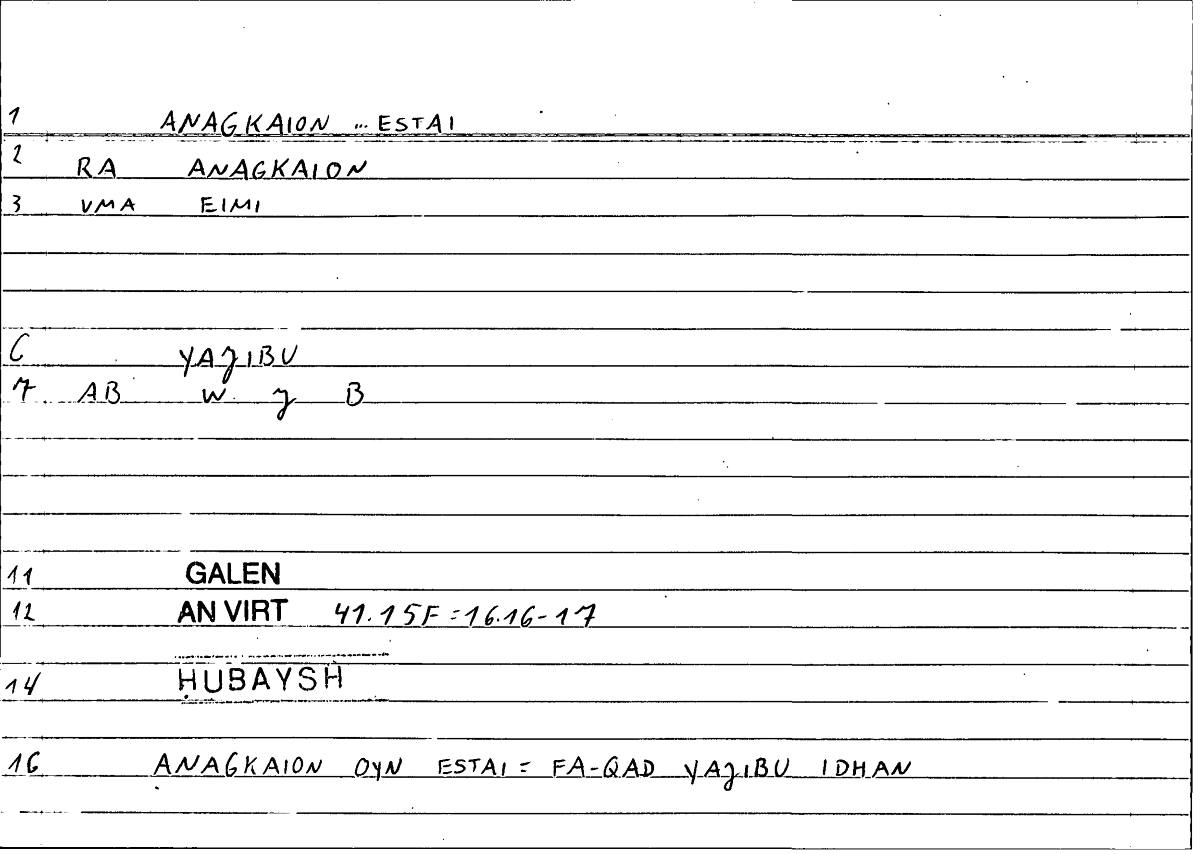 1 ANAGKAION ... ESTAI
2 RA ANAGKAION
3 VMA EIMI
6 YAJIBU
7 AB W J B
11 GALEN
12 AN VIRT 41.15F = 16.16-17
14 ḤUBAYSH
16 ANAGKAION OYN ESTAI = FA-QAD YAJIBU IDHAN